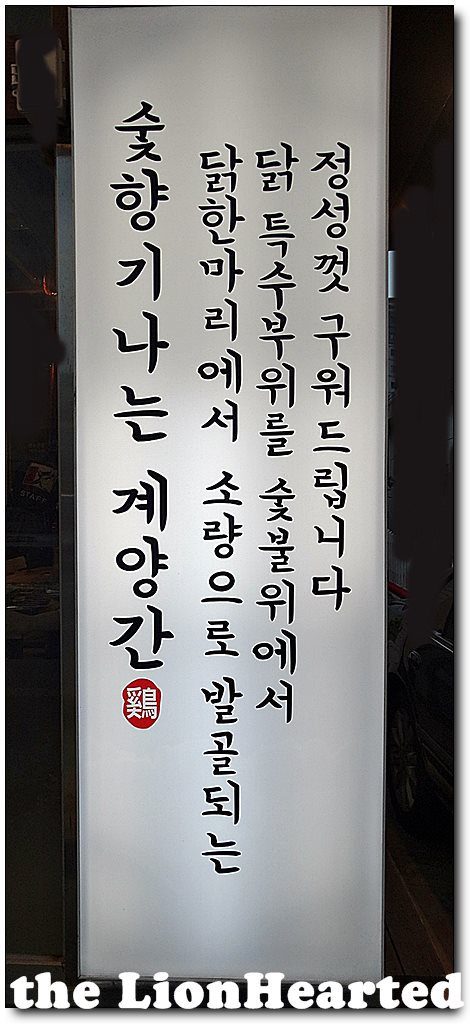 숯향기나는 계양간
鷄
닭한마리에서 소량으로 발골되는
닭 특수부위를 숯불위에서
정성껏 구워드립니다
STAFF
the LionHearted